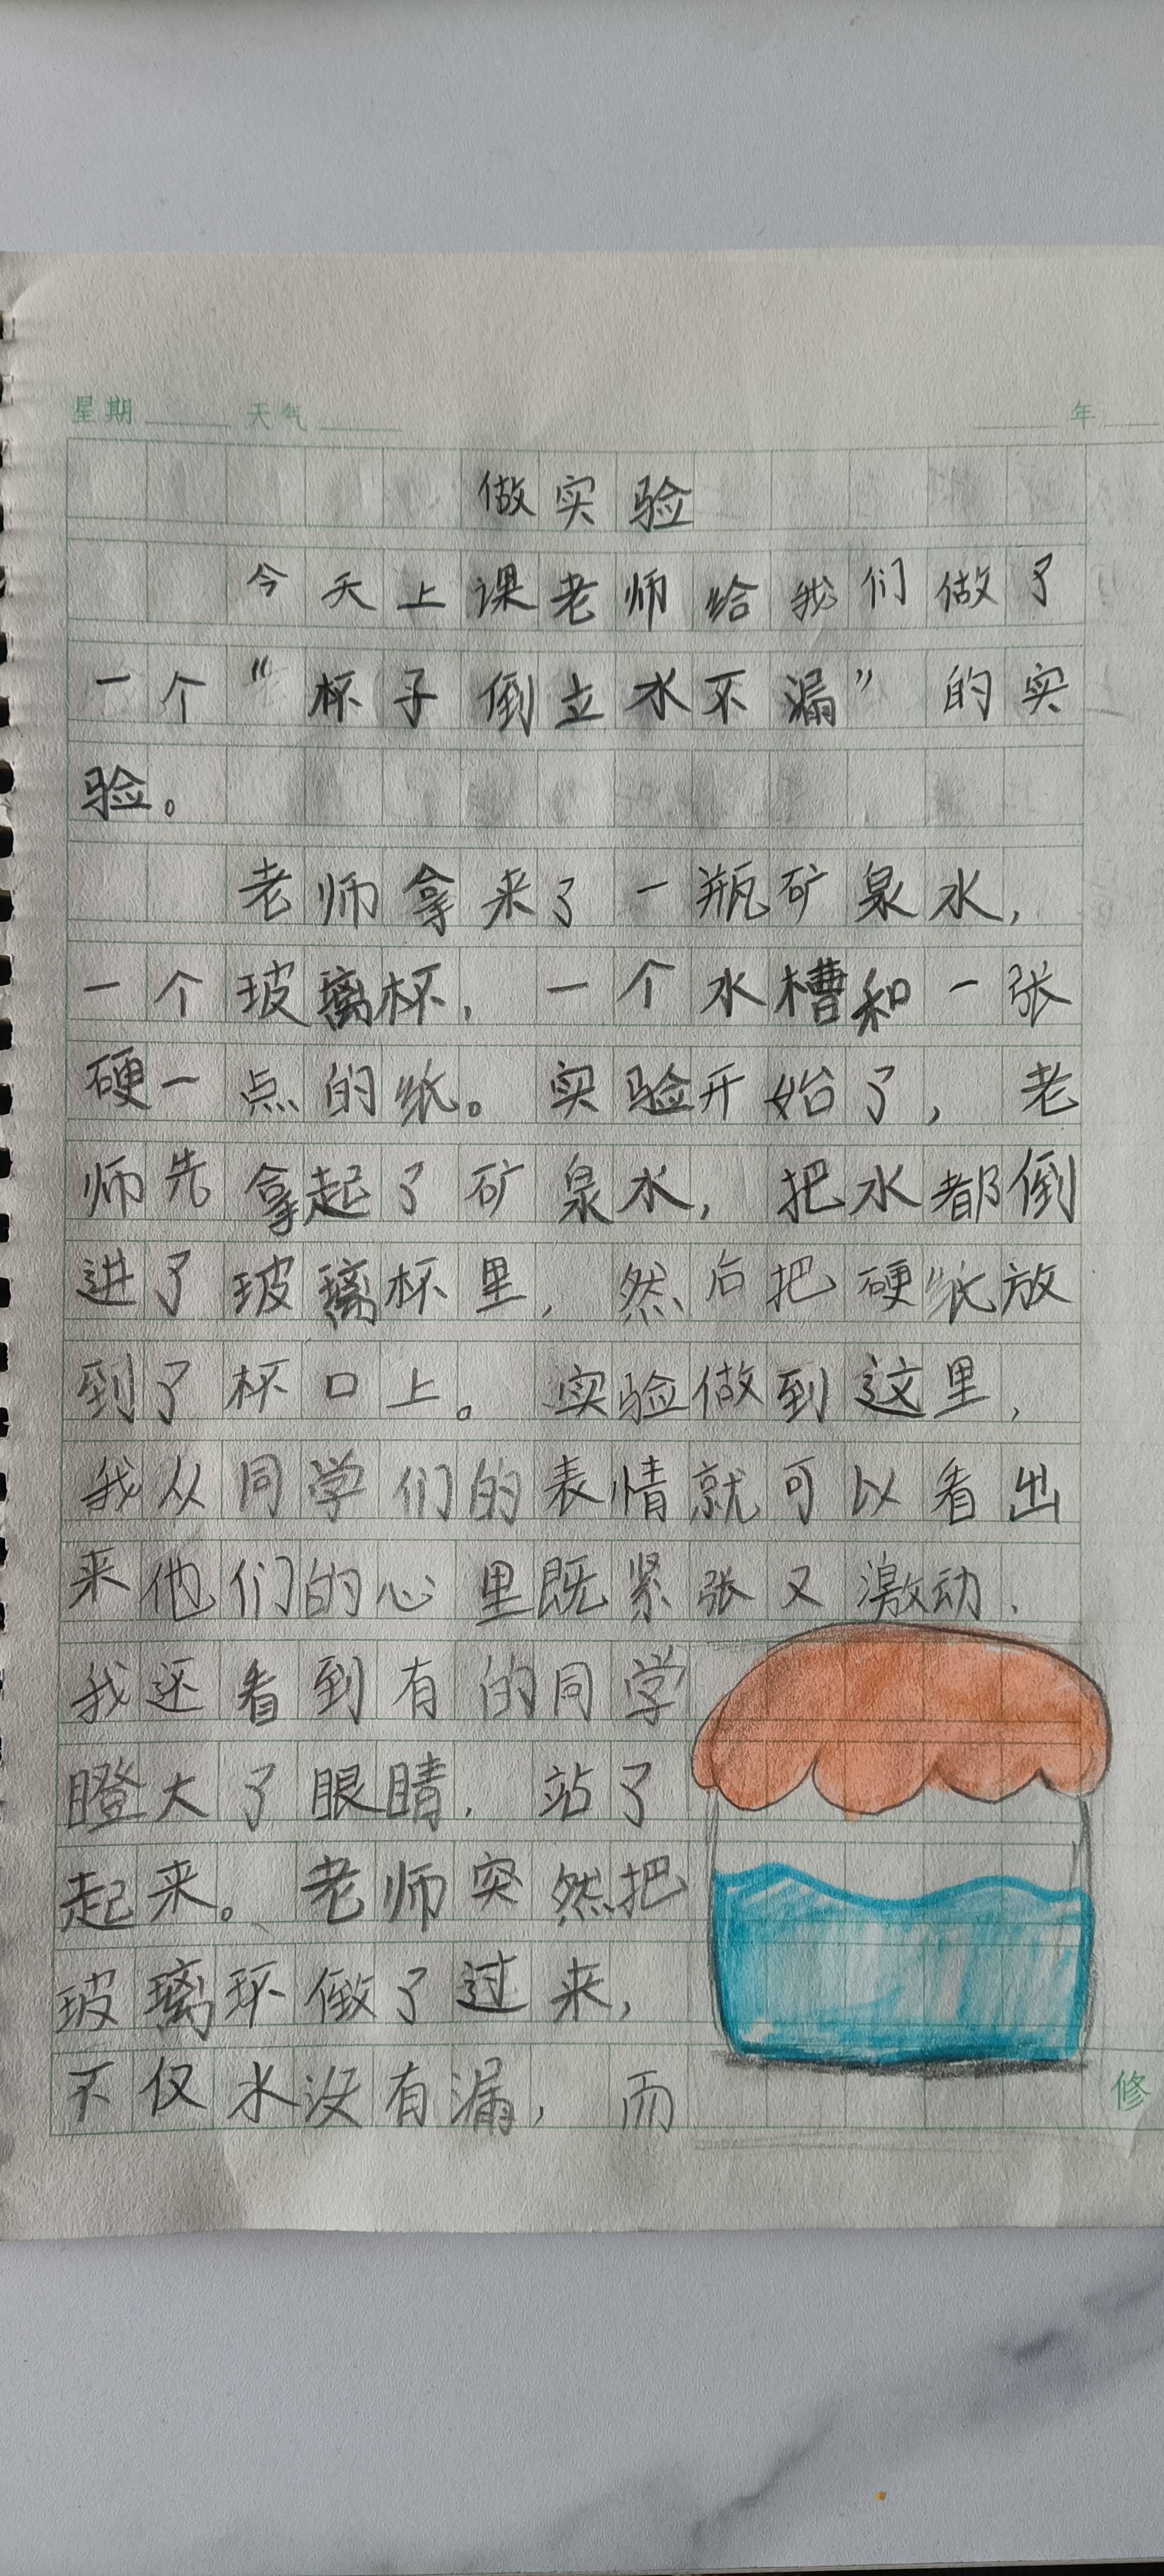 星期 天气 年
做实验
今天上课老师给我们做了
一个“杯子倒立水不漏”的实
验。
老师拿来了一瓶矿泉水，
一个玻璃杯，一个水槽和一张
硬一点的纸。实验开始了，老
师先拿起了矿泉水，把水都倒
进了玻璃杯里，然后把硬纸放
到了杯口上。实验做到这里，
我从同学们的表情就可以看出
来他们的心里既紧张又激动，
我还看到有的同学
瞪大了眼睛，站了
起来。老师突然把
玻璃环倒了过来，
不仅水没有漏，而
修